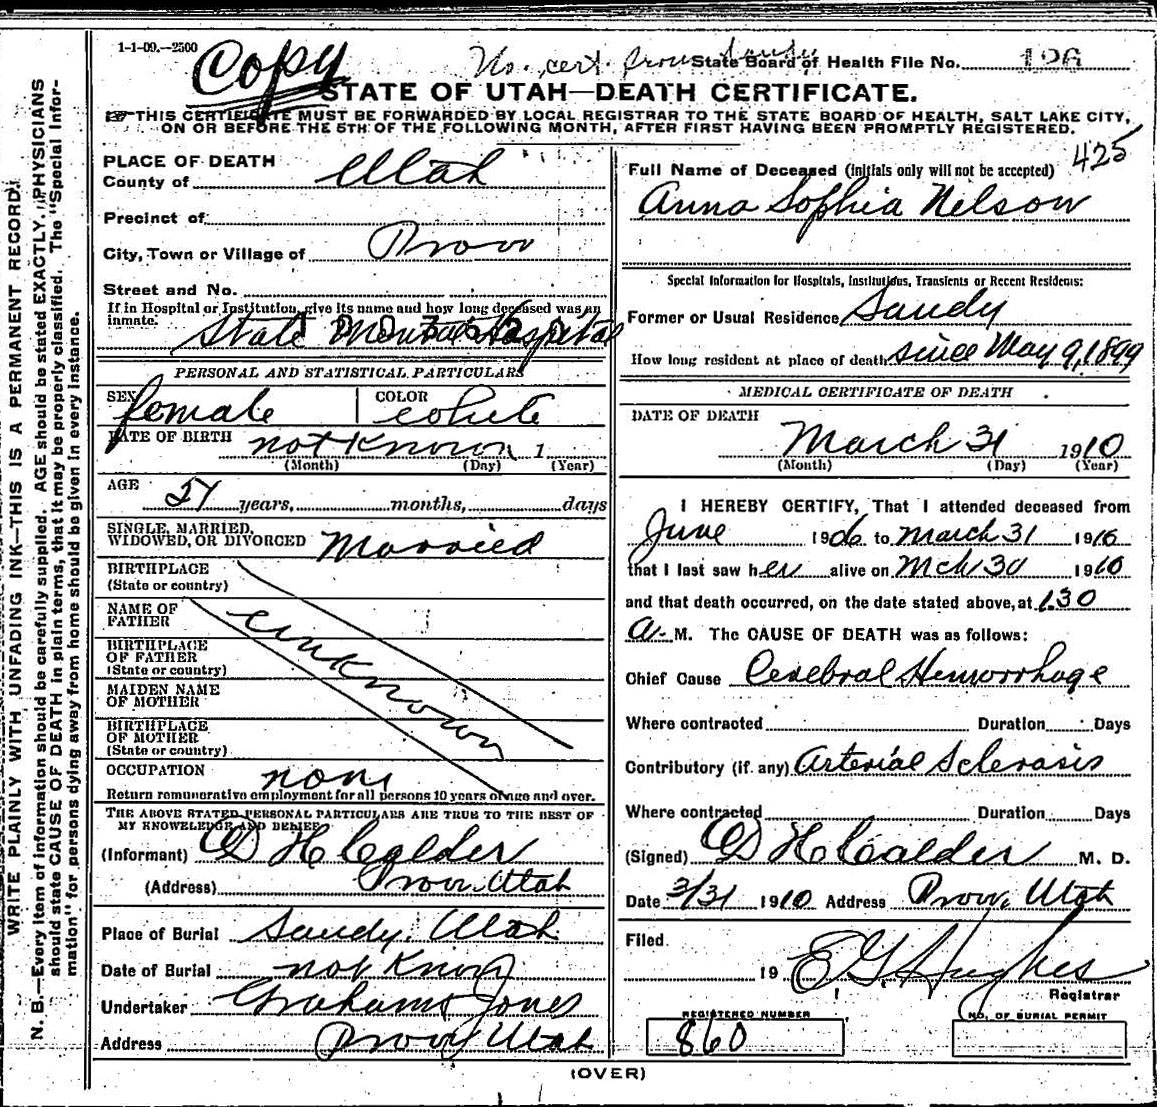 1-1-09.--2500
Copy
No. cert. Provo Sandy
State Board of Health File No. 196
STATE OF UTAH—DEATH CERTIFICATE.
THIS CERTIFICATE MUST BE FORWARDED BY LOCAL REGISTRAR TO THE STATE BOARD OF HEALTH, SALT LAKE CITY,
ON OR BEFORE THE 5TH OF THE FOLLOWING MONTH, AFTER FIRST HAVING BEEN PROMPTLY REGISTERED.
WRITE PLAINLY WITH UNFADING INK—THIS IS A PERMANENT RECORD.
N. B.—Every item of information should be carefully supplied. AGE should be stated EXACTLY. PHYSICIANS
should state CAUSE OF DEATH in plain terms, that it may be properly classified. The "Special Infor-
mation" for persons dying away from home should be given in every instance.
PLACE OF DEATH
County of Utah
Precinct of
City, Town or Village of Provo
Street and No.
If in Hospital or Institution, give its name and how long deceased was an
inmate.
State Mental Hospital
PERSONAL AND STATISTICAL PARTICULARS
SEX female COLOR white
DATE OF BIRTH not Known 1
(Month) (Day) (Year)
AGE
57 years, months, days
SINGLE, MARRIED,
WIDOWED, OR DIVORCED Married
BIRTHPLACE
(State or country)
NAME OF
FATHER
unknown
BIRTHPLACE
OF FATHER
(State or country)
MAIDEN NAME
OF MOTHER
BIRTHPLACE
OF MOTHER
(State or country)
OCCUPATION none
Return remunerative employment for all persons 10 years of age and over.
THE ABOVE STATED PERSONAL PARTICULARS ARE TRUE TO THE BEST OF
MY KNOWLEDGE AND BELIEF
(Informant) D H Calder
(Address) Provo Utah
Place of Burial Sandy, Utah
Date of Burial not Known
Undertaker Graham Jones
Address Provo Utah
425
Full Name of Deceased (initials only will not be accepted)
Anna Sophia Nilson
Special Information for Hospitals, Institutions, Transients or Recent Residents:
Former or Usual Residence Sandy
How long resident at place of death since May 9, 1899
MEDICAL CERTIFICATE OF DEATH
DATE OF DEATH
March 31 1910
(Month) (Day) (Year)
I HEREBY CERTIFY, That I attended deceased from
June 1906 to March 31 1910
that I last saw her alive on Mch 30 1910
and that death occurred, on the date stated above, at 1.30
a. M. The CAUSE OF DEATH was as follows:
Chief Cause Cerebral Hemorrhage
Where contracted Duration Days
Contributory (if any) Arterial Sclerosis
Where contracted Duration Days
(Signed) D H Calder M. D.
Date 3/31 1910 Address Provo, Utah
Filed
19 E G Hughes
Registrar
REGISTERED NUMBER
860
NO. OF BURIAL PERMIT
(OVER)